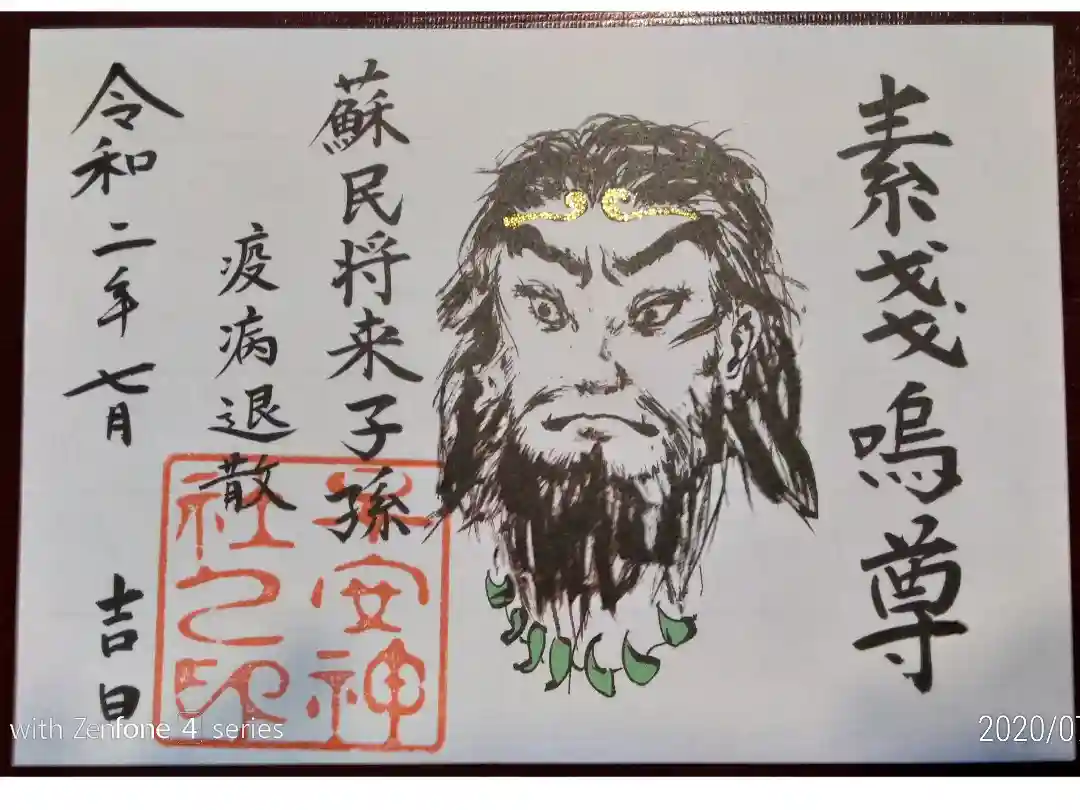 素戔嗚尊
蘇民将来子孫
疫病退散
令和二年七月 吉日
平安神
社之印
with Zenfone 4 series
2020/07